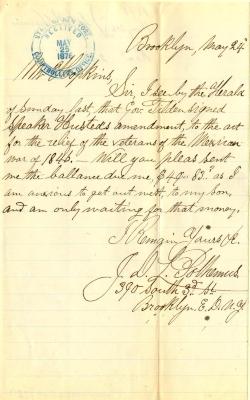 RECEIVED
MAY
25
1876
COMPTROLLER'S OFFICE
Brooklyn, May 24th
Mr Hopkins,
Sir, I see by the Herald
of Sunday last, that Gov Tilden signed
Speaker Husteds amendment, to the act
for the relief of the veterans of the Mexican
war of 1846. – Will you pleas sent
me the ballance due me, $40.83.c as I
am anxious to get out west, to my son,
and am only waiting for that money.
I Remain Yours &c.
J. D. L. Polhemus
390 South 3rd St
Brooklyn, E. D. N. Y.